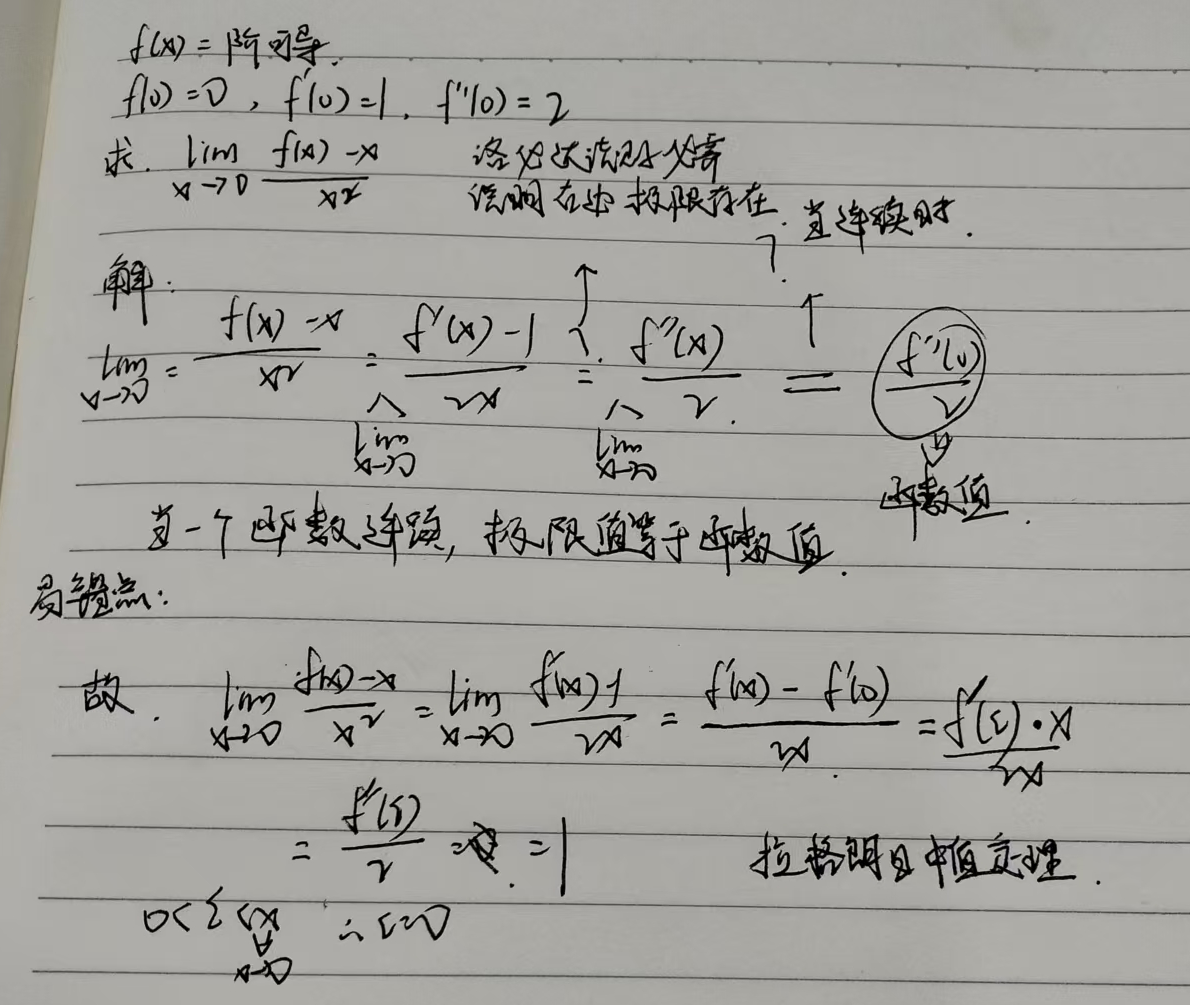 f(x)二阶可导.
f(0)=0, f'(0)=1, f''(0)=2
求. lim x→0 (f(x)-x)/x² 洛必达法则必需
说明右边极限存在. 当连续时.
?
解:
lim x→0 = (f(x)-x)/x² = lim x→0 (f'(x)-1)/2x = lim x→0 f''(x)/2. = f''(0)/2
函数值.
当一个函数连续, 极限值等于函数值.
易错点:
故. lim x→0 (f(x)-x)/x² = lim x→0 (f'(x)-1)/2x = (f'(x)-f'(0))/2x. = f''(ξ)·x/2x
= f''(ξ)/2 = 1
拉格朗日中值定理.
0<ξ<x ∴ ξ=0
x→0